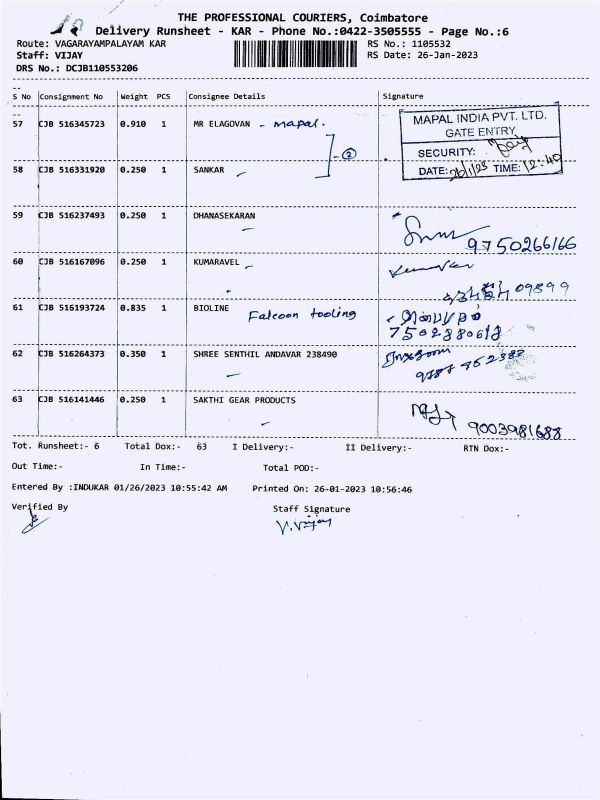 THE PROFESSIONAL COURIERS, Coimbatore
Delivery Runsheet - KAR - Phone No.:0422-3505555 - Page No.:6
Route: VAGARAYAMPALAYAM KAR
RS No.: 1105532
Staff: VIJAY
RS Date: 26-Jan-2023
DRS No.: DCJB110553206
S No Consignment No Weight PCS Consignee Details Signature
57 CJB 516345723 0.910 1 MR ELAGOVAN - mapal.
MAPAL INDIA PVT. LTD.
GATE ENTRY
SECURITY:
DATE: 26/1/23 TIME: 12:40
2
58 CJB 516331920 0.250 1 SANKAR
59 CJB 516237493 0.250 1 DHANASEKARAN
9750266166
60 CJB 516167096 0.250 1 KUMARAVEL
Kumar
09899
61 CJB 516193724 0.835 1 BIOLINE Falcoon tooling
62 CJB 516264373 0.350 1 SHREE SENTHIL ANDAVAR 238490
63 CJB 516141446 0.250 1 SAKTHI GEAR PRODUCTS
9003981688
Tot. Runsheet:- 6 Total Dox:- 63 I Delivery:- II Delivery:- RTN Dox:-
Out Time:- In Time:- Total POD:-
Entered By :INDUKAR 01/26/2023 10:55:42 AM Printed On: 26-01-2023 10:56:46
Verified By Staff Signature
V.Vijay